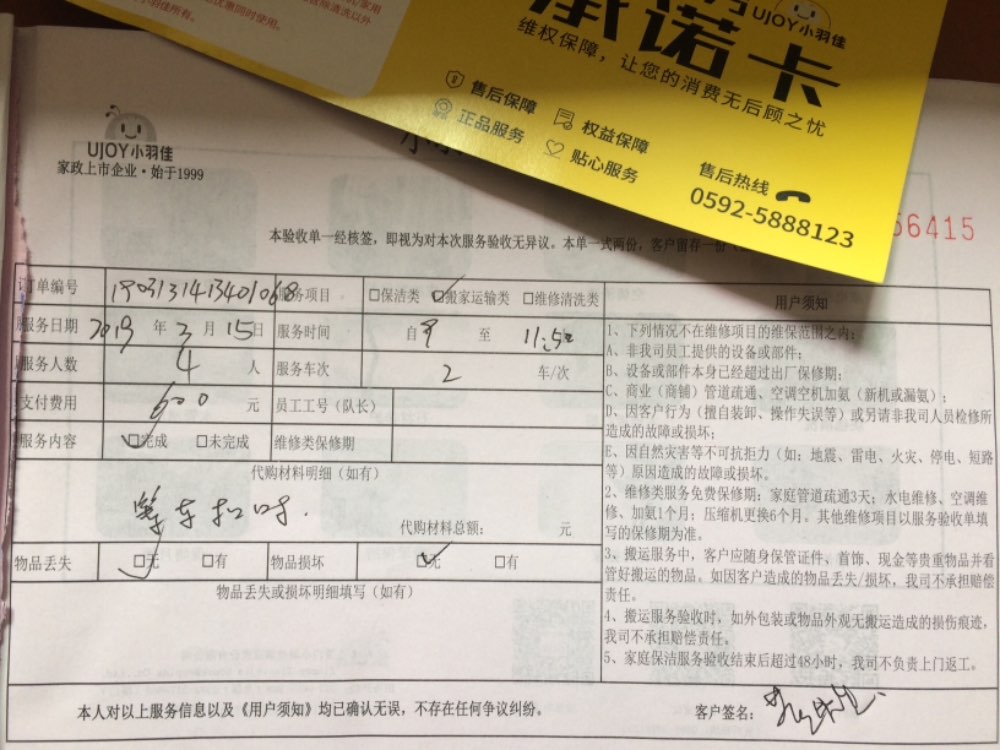 所有。
惠同时使用。
除清洗以外
承诺卡
UJOY小羽佳
维权保障，让您的消费无后顾之忧
售后保障
权益保障
正品服务
贴心服务
售后热线
0592-5888123
UJOY小羽佳
家政上市企业·始于1999
56415
本验收单一经核签，即视为对本次服务验收无异议。本单一式两份，客户留存一份
订单编号 1903131413401068 服务项目 □保洁类 □搬家运输类 □维修清洗类 用户须知
服务日期 2019 年 3 月 15 日 服务时间 自 9 至 11:50
服务人数 4 人 服务车次 2 车/次
支付费用 600 元 员工工号（队长）
服务内容 □完成 □未完成 维修类保修期
代购材料明细（如有）
代购材料总额： 元
物品丢失 □无 □有 物品损坏 □无 □有
物品丢失或损坏明细填写（如有）
1、下列情况不在维修项目的维保范围之内：
A、非我司员工提供的设备或部件；
B、设备或部件本身已经超过出厂保修期；
C、商业（商铺）管道疏通、空调空机加氨（新机或漏氨）；
D、因客户行为（擅自装卸、操作失误等）或另请非我司人员检修所
造成的故障或损坏；
E、因自然灾害等不可抗拒力（如：地震、雷电、火灾、停电、短路
等）原因造成的故障或损坏。
2、维修类服务免费保修期：家庭管道疏通3天；水电维修、空调维
修、加氨1个月；压缩机更换6个月。其他维修项目以服务验收单填
写的保修期为准。
3、搬运服务中，客户应随身保管证件、首饰、现金等贵重物品并看
管好搬运的物品。如因客户造成的物品丢失/损坏，我司不承担赔偿
责任。
4、搬运服务验收时，如外包装或物品外观无搬运造成的损伤痕迹，
我司不承担赔偿责任。
5、家庭保洁服务验收结束后超过48小时，我司不负责上门返工。
本人对以上服务信息以及《用户须知》均已确认无误，不存在任何争议纠纷。 客户签名：